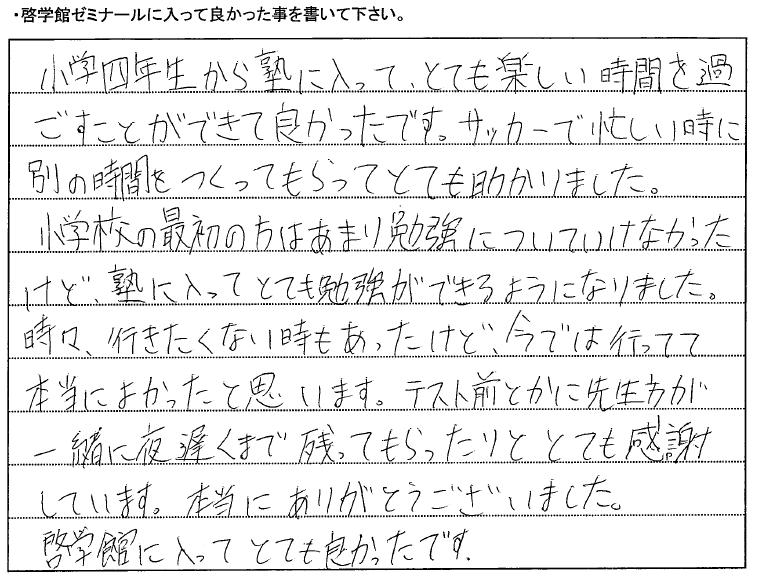 ・啓学館ゼミナールに入って良かった事を書いて下さい。
小学四年生から塾に入って、とても楽しい時間を過
ごすことができて良かったです。サッカーで忙しい時に
別の時間をつくってもらってとても助かりました。
小学校の最初の方はあまり勉強についていけなかった
けど、塾に入ってとても勉強ができるようになりました。
時々、行きたくない時もあったけど、今では行ってて
本当によかったと思います。テスト前とかに先生方が
一緒に夜遅くまで残ってもらったりととても感謝
しています。本当にありがとうございました。
啓学館に入ってとても良かったです.